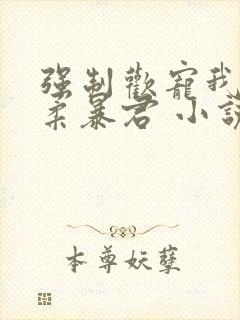 强制歡寵我
柔暴君 小說
本尊妖孽